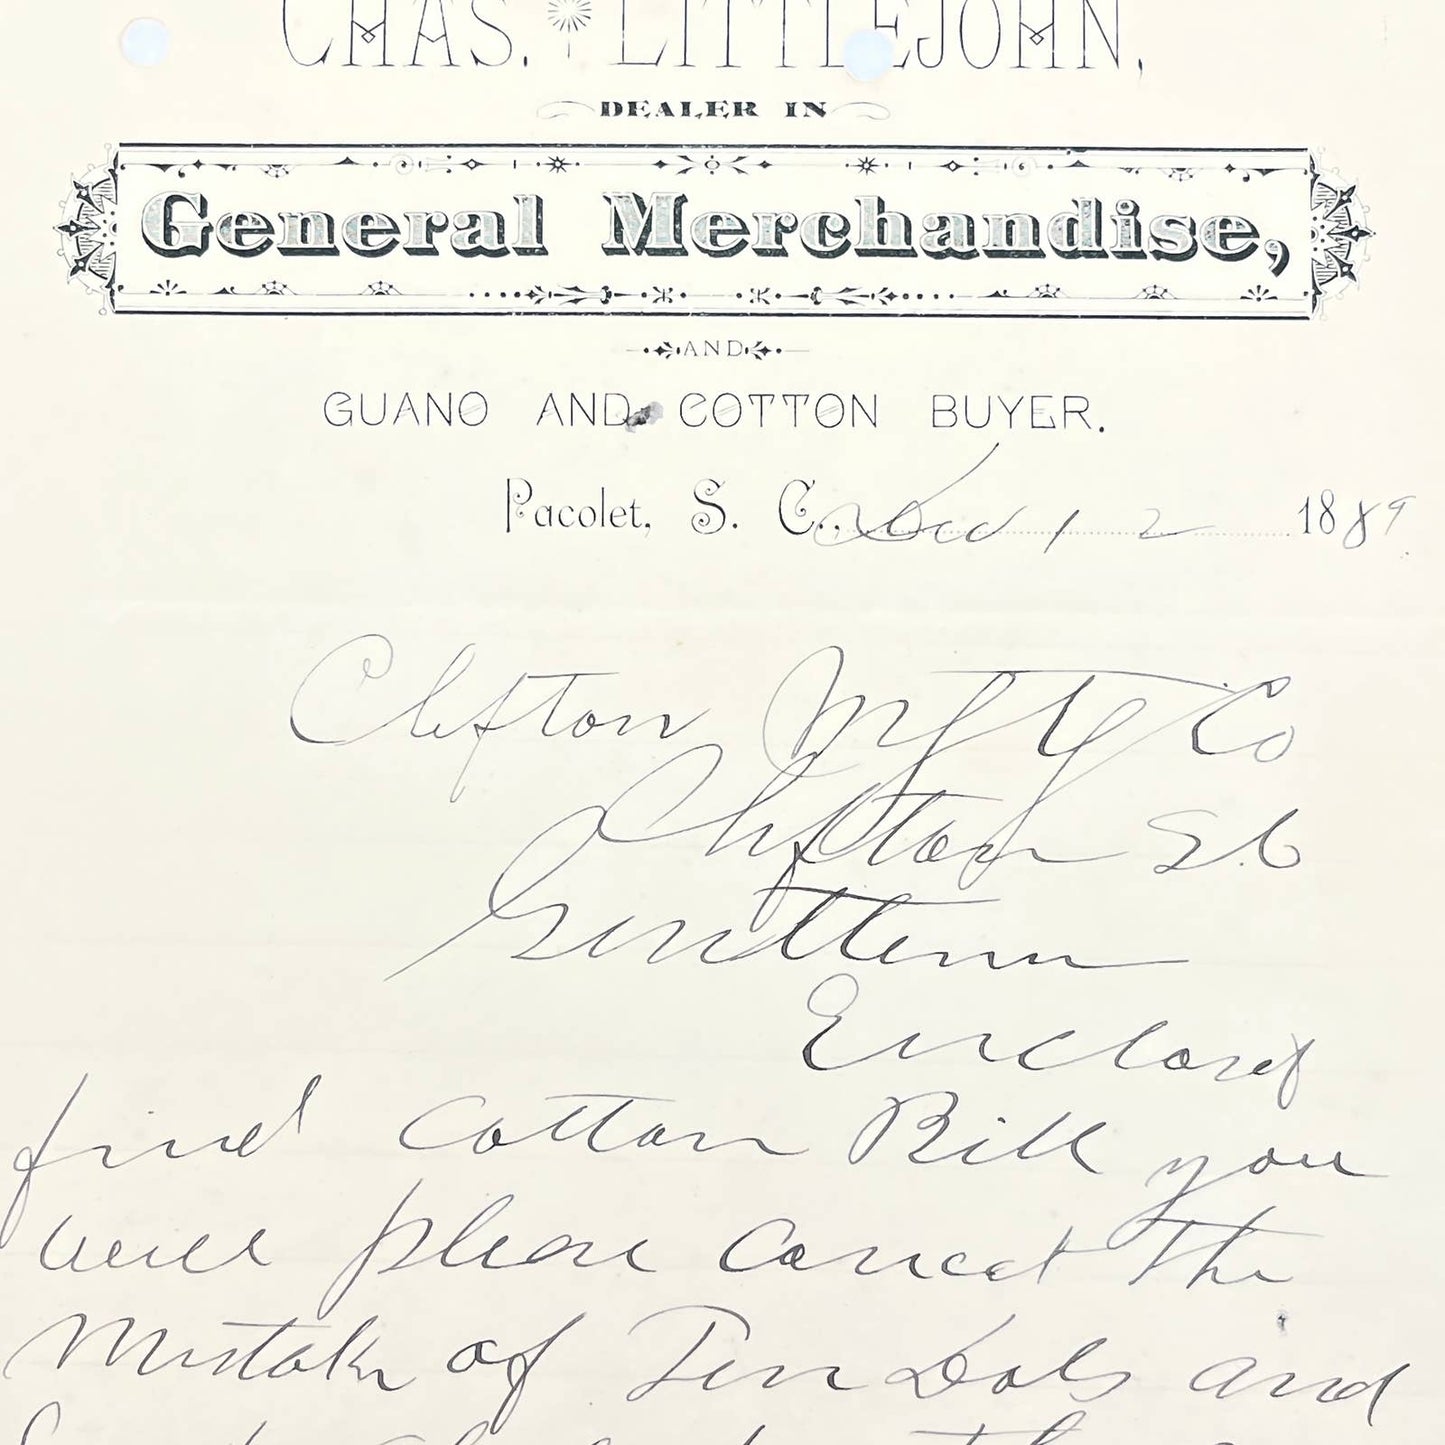 CHAS. LITTLEJOHN,
DEALER IN
General Merchandise,
AND
GUANO AND COTTON BUYER.
Pacolet, S. C., Dec 12 1889.
Clifton Mfg Co
Clifton S.C
Gentlemen
Enclosed
find Cotton Bill you
will please correct the
Mistake of Ten Dols and